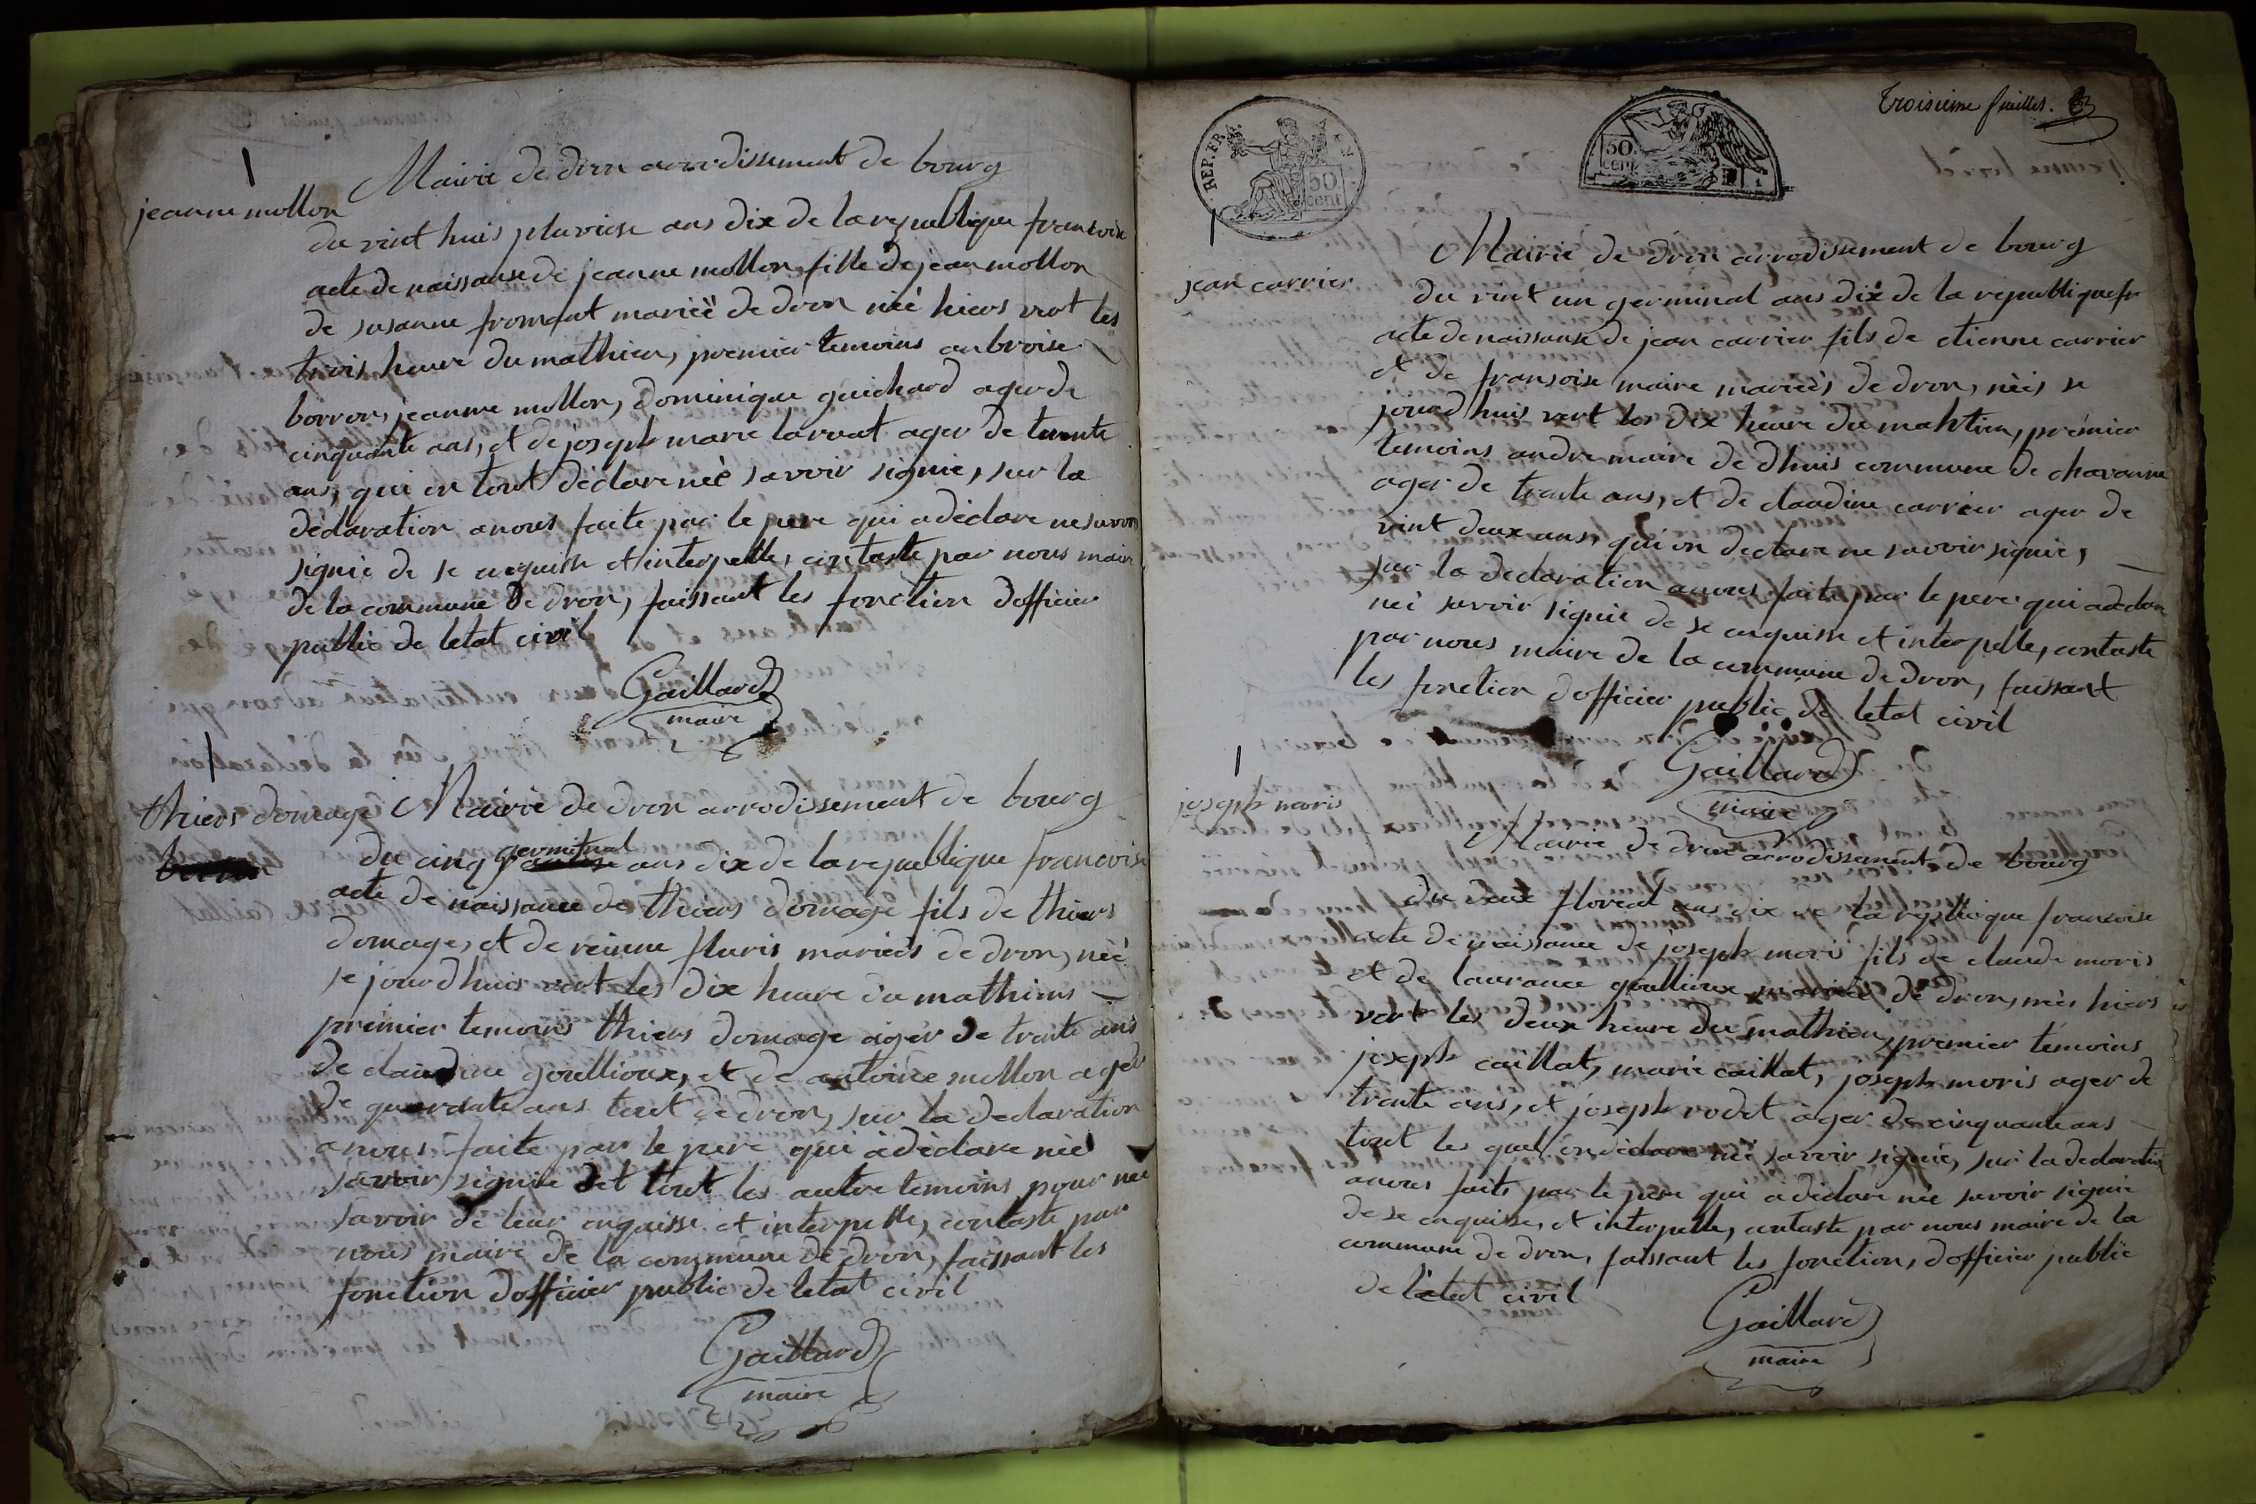 jeanne mollon
Mairie de dron arrodissement de bourg
du vint huis pluviose ans dix de la republique francoise
acte de naissanse de jeanne mollon, fille de jean mollon
de susanne fromant marièè de dron nèè hiers vert les
trois heure du mathien, premier temoins anbroise
borron, jeanne mollon, dominique guichard ager de
cinquante ans, et de joseph marie larvat ager de trente
ans, qui on tout dèclare nèe savoir signie, sur la
dèclaration anous faite par le pere qui a dèclare ne savoir
signie de se enquish et interpelle, contaste par nous maire
de la commune de dron, faissant les fonction dofficier
public de letat civil
Gaillard
maire
thiers domage
Mairie de dron arrodissement de bourg
du cinq germinal ans dix de la republique francoise
acte de naissance de thiers domage fils de thiers
domage, et de reinne fluris marièès de dron, nèè
se jourdhuis vert les dix heure du mathiens
premier temoins thiers domage ager de trante ans
de claudine goullioux, et de antoine mollon ager
de quarante ans tout de dron, sur la declaration
anous faite par le pere qui à dèclare nèe
savoir signie et tout les autre temoins pour nee
savoir de leur enquisse et interpelle, contaste par
nous maire de la commune de dron, faissant les
fonction dofficier public de letat civil
Gaillard
maire
REP. FRA.
50
cent
50
cent
Troisieme feuillet.
jean carrier
Mairie de dron arrodissement de bourg
du vint un germinal ans dix de la republique fr
acte de naissanse de jean carrier fils de etienne carrier
et de fransoise maire marièès de dron, nèès se
jourdhuis vert les dix heure du mahtien, prémier
temoins andre maire de dhuis commune de chavanne
ager de trante ans, et de claudine carrier ager de
vint deux ans, qui on declare ne savoir signie,
sur la declaration anous faite par le pere qui a declare
neè savoir signie de se enquish et interpelle, contaste
par nous maire de la commune de dron, faissant
les fonction dofficier public de letat civil
Gaillard
maire
joseph moris
Mairie de dron arrodissement de bourg
du deux floreal ans dix de la republique francoise
acte de naissance de joseph moris fils de claude moris
et de laurance goullioux marièè de dron, nèès hiers
vert les deux heure du mathien, premier temoins
joseph caillat, marie caillat, joseph moris ager de
trante ans, et joseph rodet ager de cinquante ans
tout les quel on dèclare neè savoir signie, sur la declaration
anous faite par le pere qui a dèclare nèe savoir signie
de se enquisse, et interpelle, contaste par nous maire de la
commune de dron, faissant les fonction, dofficier public
de lètat civil
Gaillard
maire